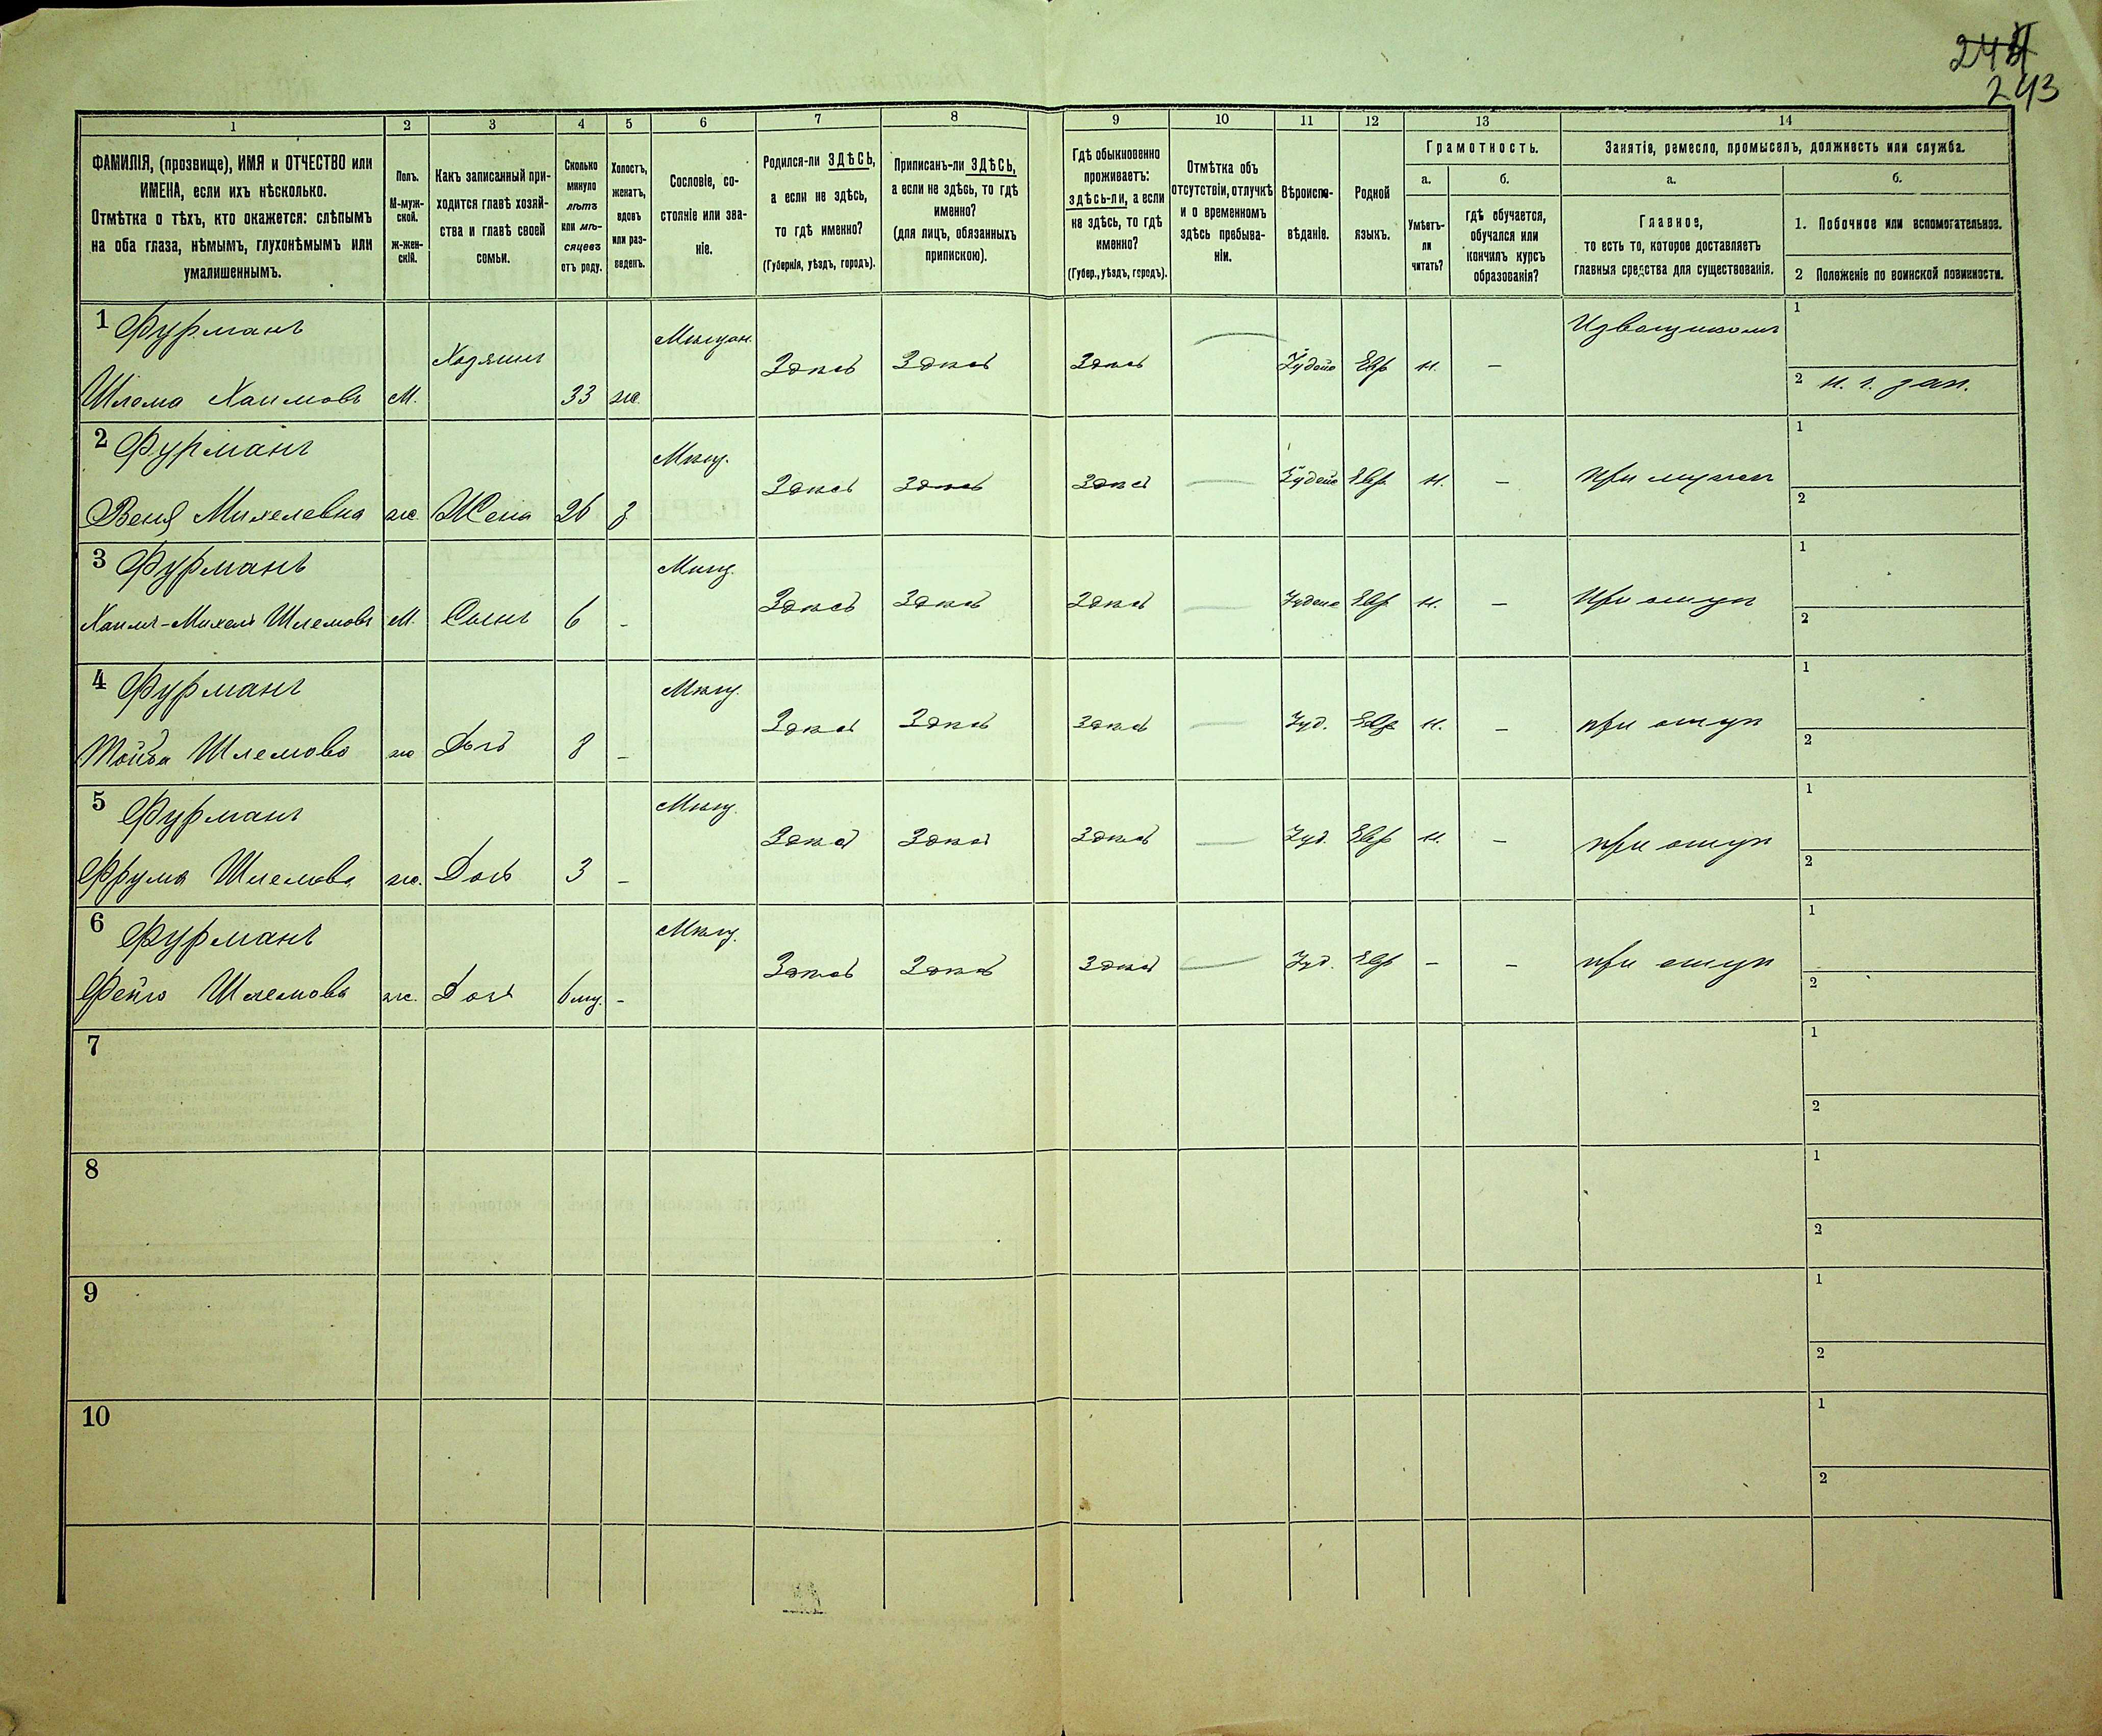 243
1 2 3 4 5 6 7 8 9 10 11 12 13 14
ФАМИЛІЯ, (прозвище), ИМЯ и ОТЧЕСТВО или
ИМЕНА, если ихъ нѣсколько.
Отмѣтка о тѣхъ, кто окажется: слѣпымъ
на оба глаза, нѣмымъ, глухонѣмымъ или
умалишеннымъ.
Полъ.
М-муж-
ской.
ж-жен-
скій.
Какъ записанный при-
ходится главѣ хозяй-
ства и главѣ своей
семьи.
Сколько
минуло
лѣтъ
или мѣ-
сяцевъ
отъ роду.
Холостъ,
женатъ,
вдовъ
или раз-
веденъ.
Сословіе, со-
стояніе или зва-
ніе.
Родился-ли ЗДѢСЬ,
а если не здѣсь,
то гдѣ именно?
(Губернія, уѣздъ, городъ).
Приписанъ-ли ЗДѢСЬ,
а если не здѣсь, то гдѣ
именно?
(для лицъ, обязанныхъ
припискою).
Гдѣ обыкновенно
проживаетъ:
здѣсь-ли, а если
не здѣсь, то гдѣ
именно?
(Губер., уѣздъ, городъ).
Отмѣтка объ
отсутствіи, отлучкѣ
и о временномъ
здѣсь пребыва-
ніи.
Вѣроиспо-
вѣданіе.
Родной
языкъ.
Грамотность.
а.
Умѣетъ-
ли
читать?
б.
гдѣ обучается,
обучался или
кончилъ курсъ
образованія?
Занятіе, ремесло, промыселъ, должность или служба.
а.
Главное,
то есть то, которое доставляетъ
главныя средства для существованія.
б.
1. Побочное или вспомогательное.
2 Положеніе по воинской повинности.
1 Фурманъ
Шлема Хаимовъ М. Хозяинъ 33 ж. Мѣщан. Здѣсь Здѣсь Здѣсь — Іудейс Евр н. — Извощикомъ
1
2 н. г. зап.
2 Фурманъ
Веня Михелевна ж. Жена 26 з Мѣщ. Здѣсь Здѣсь Здѣсь — Іудейс Евр н. — при мужѣ
1
2
3 Фурманъ
Хаимъ-Михель Шлемовъ М. Сынъ 6 - Мѣщ. Здѣсь Здѣсь Здѣсь — Іудейс Евр н. — При отцѣ
1
2
4 Фурманъ
Тойба Шлемова ж Дочь 8 - Мѣщ. Здѣсь Здѣсь Здѣсь — Іуд. Евр н. — при отцѣ
1
2
5 Фурманъ
Фрума Шлемова ж. Дочь 3 - Мѣщ. Здѣсь Здѣсь Здѣсь — Іуд. Евр н. — при отцѣ
1
2
6 Фурманъ
Фейга Шлемова ж. Дочь 6 мц. - Мѣщ. Здѣсь Здѣсь Здѣсь — Іуд. Евр — — при отцѣ
1
2
7
1
2
8
1
2
9
1
2
10
1
2